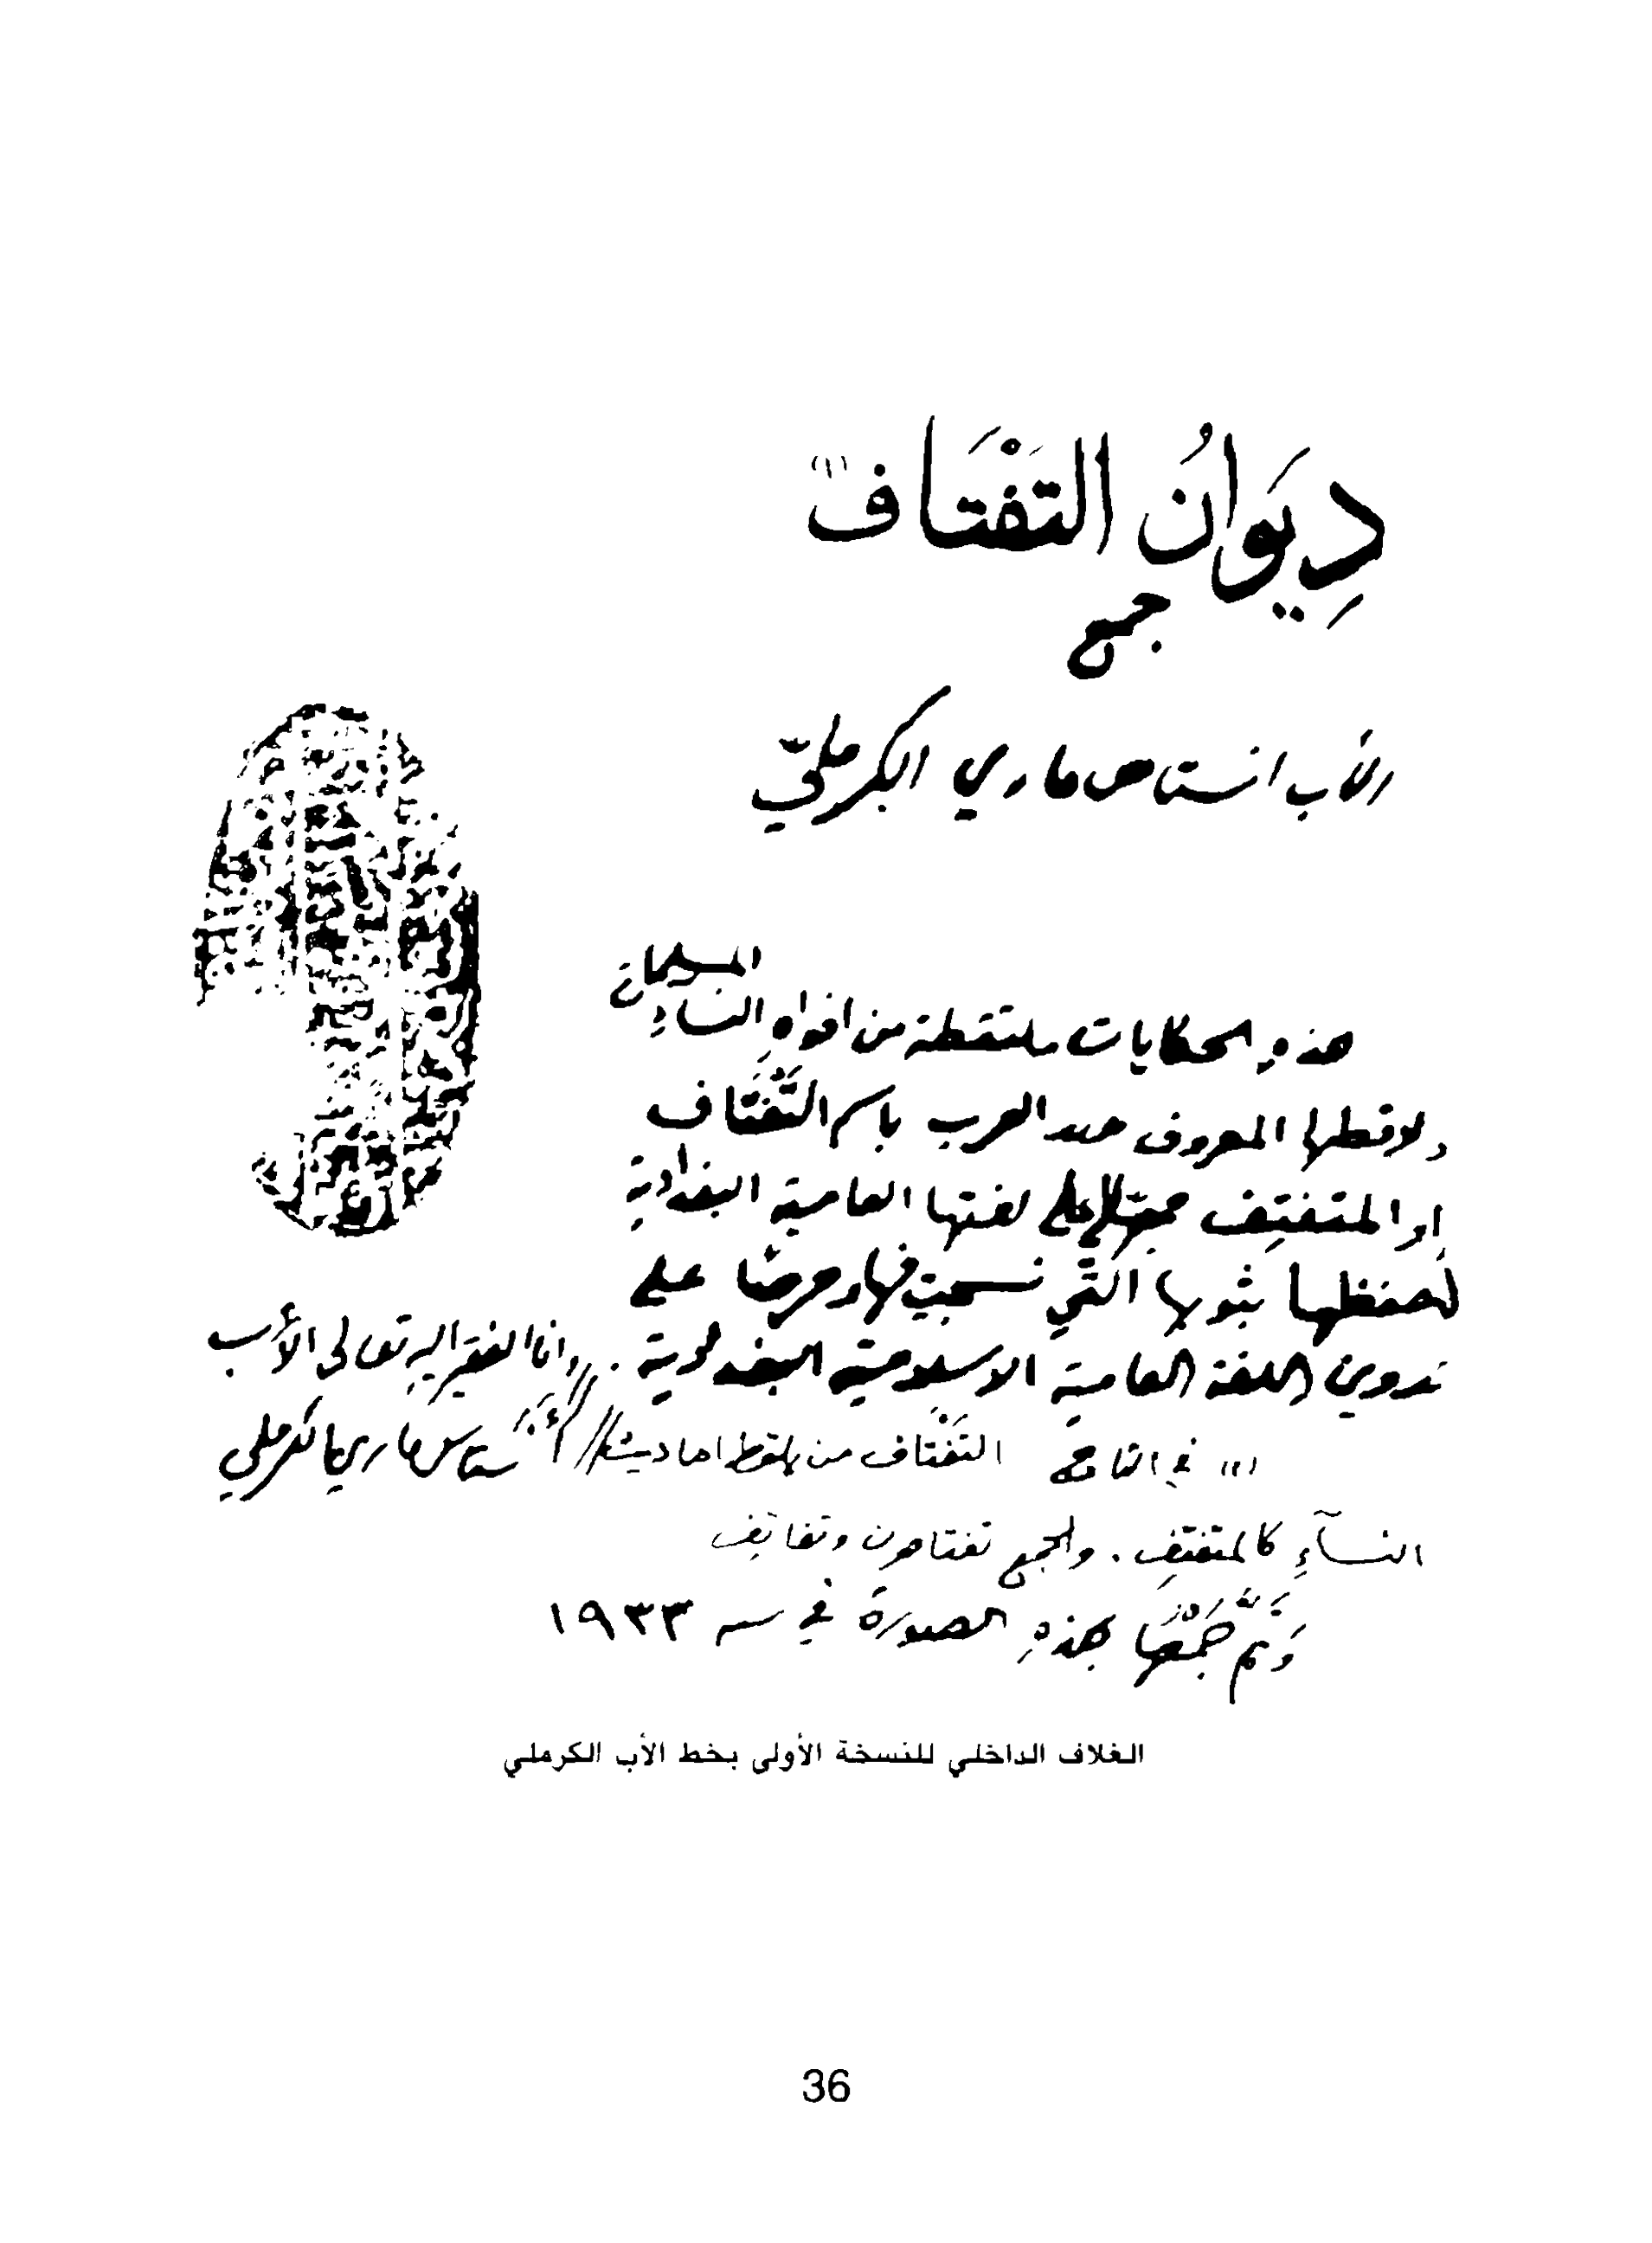 دِيَوَانُ التَفْتَاف (١)
جمع
الأب انستاس ماري الكرمليّ
المسلمات
هذه الحكايات ملتقطة من افواه النساءِ
ولاقطها المعروف عند العرب باسم التَّفْتَاف
او المتفتِف لغتها العامية البغدادية
لحفظها بثوبها الَّتي نسجت فيها وحرصًا على
تدوين اللغة العامية الاسلامية البغدادية . وانا الفقير اليه تعالى الأب
أَنستاس ماري الكرملي
(١) في التاج التَفْتَاف من يلقط احاديث
النسآءِ كالمتفتِفِ . والجمع تفتافون وتفاتِف
وَتَمَّ جَمْعُهَا بهذه الصورة في سنة ١٩٣٣
الغلاف الداخلي للنسخة الأولى بخط الأب الكرملي
36